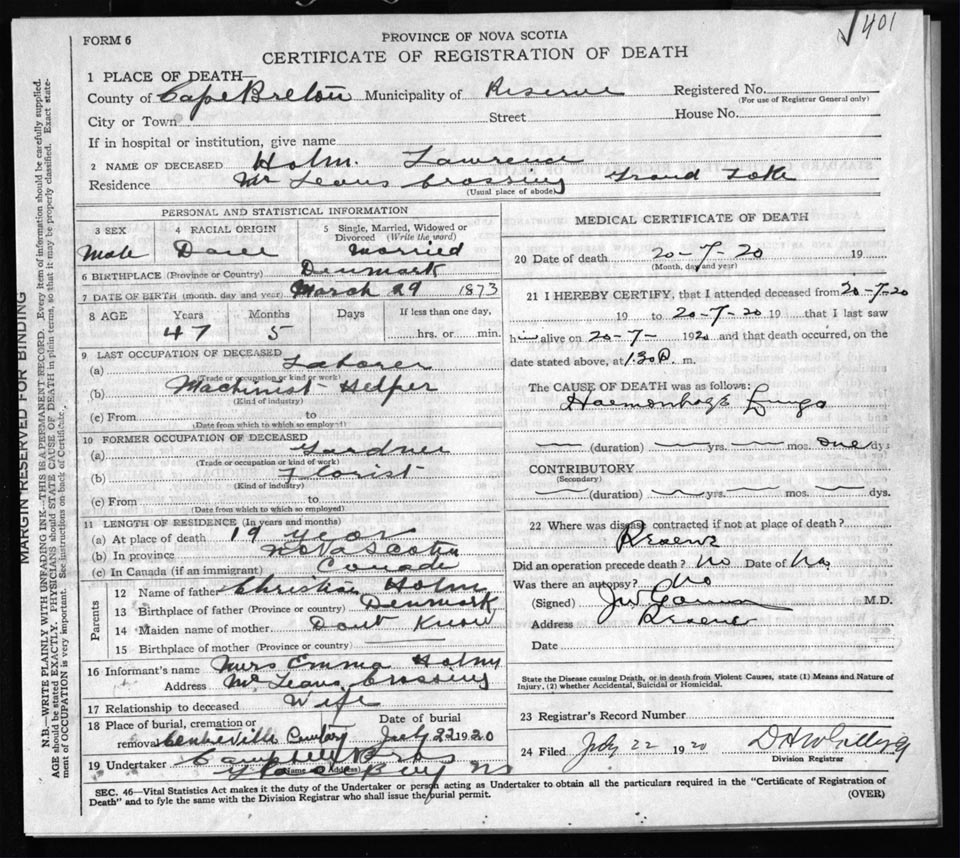 401
PROVINCE OF NOVA SCOTIA
FORM 6
CERTIFICATE OF REGISTRATION OF DEATH
1 PLACE OF DEATH—
County of Cape Breton Municipality of Reserve Registered No.
(For use of Registrar General only)
City or Town Street House No.
If in hospital or institution, give name
2 NAME OF DECEASED Holm. Lawrence
Residence Mc Leans Crossing Grand Lake
(Usual place of abode)
PERSONAL AND STATISTICAL INFORMATION
3 SEX 4 RACIAL ORIGIN 5 Single, Married, Widowed or Divorced (Write the word)
Male Dane Married
6 BIRTHPLACE (Province or Country) Denmark
7 DATE OF BIRTH (month, day and year) March 29 1873
8 AGE Years Months Days If less than one day,
47 5 hrs. or min.
9 LAST OCCUPATION OF DECEASED
(a) Laborer
(Trade or occupation or kind of work)
(b) Machinist Helper
(Kind of industry)
(c) From to
(Date from which to which so employed)
10 FORMER OCCUPATION OF DECEASED
(a) Gardner
(Trade or occupation or kind of work)
(b) Florist
(Kind of industry)
(c) From to
(Date from which to which so employed)
11 LENGTH OF RESIDENCE (In years and months)
(a) At place of death 19 year
(b) In province Nova Scotia
(c) In Canada (if an immigrant) Canada
Parents
12 Name of father Christian Holm
13 Birthplace of father (Province or country) Denmark
14 Maiden name of mother Dont Know
15 Birthplace of mother (Province or country)
16 Informant's name Mrs Emma Holm
Address Mc Leans Crossing
17 Relationship to deceased Wife
18 Place of burial, cremation or Date of burial
removal Centreville July 22 1920
19 Undertaker
(Name and Address)
Glace Bay NS
MEDICAL CERTIFICATE OF DEATH
20 Date of death 20-7-20 19
(Month, day and year)
21 I HEREBY CERTIFY, that I attended deceased from 20-7-20
19 to 20-7-20 19 that I last saw
him alive on 20-7- 1920 and that death occurred, on the
date stated above, at 1.30 P. m.
The CAUSE OF DEATH was as follows:
Haemorrhage Lungs
(duration) yrs. mos. one dys
CONTRIBUTORY
(Secondary)
(duration) yrs. mos. dys.
22 Where was disease contracted if not at place of death?
Reserve
Did an operation precede death? No Date of No
Was there an autopsy? No
(Signed) M.D.
Address Reserve
Date
State the Disease causing Death, or in death from Violent Causes, state (1) Means and Nature of
Injury, (2) whether Accidental, Suicidal or Homicidal.
23 Registrar's Record Number
24 Filed July 22 1920
Division Registrar
SEC. 46—Vital Statistics Act makes it the duty of the Undertaker or person acting as Undertaker to obtain all the particulars required in the "Certificate of Registration of
Death" and to fyle the same with the Division Registrar who shall issue the burial permit. (OVER)
MARGIN RESERVED FOR BINDING
N.B.—WRITE PLAINLY WITH UNFADING INK—THIS IS A PERMANENT RECORD. Every item of information should be carefully supplied.
AGE should be stated EXACTLY. PHYSICIANS should STATE CAUSE OF DEATH in plain terms, so that it may be properly classified. Exact statement
of OCCUPATION is very important. See instructions on back of Certificate.